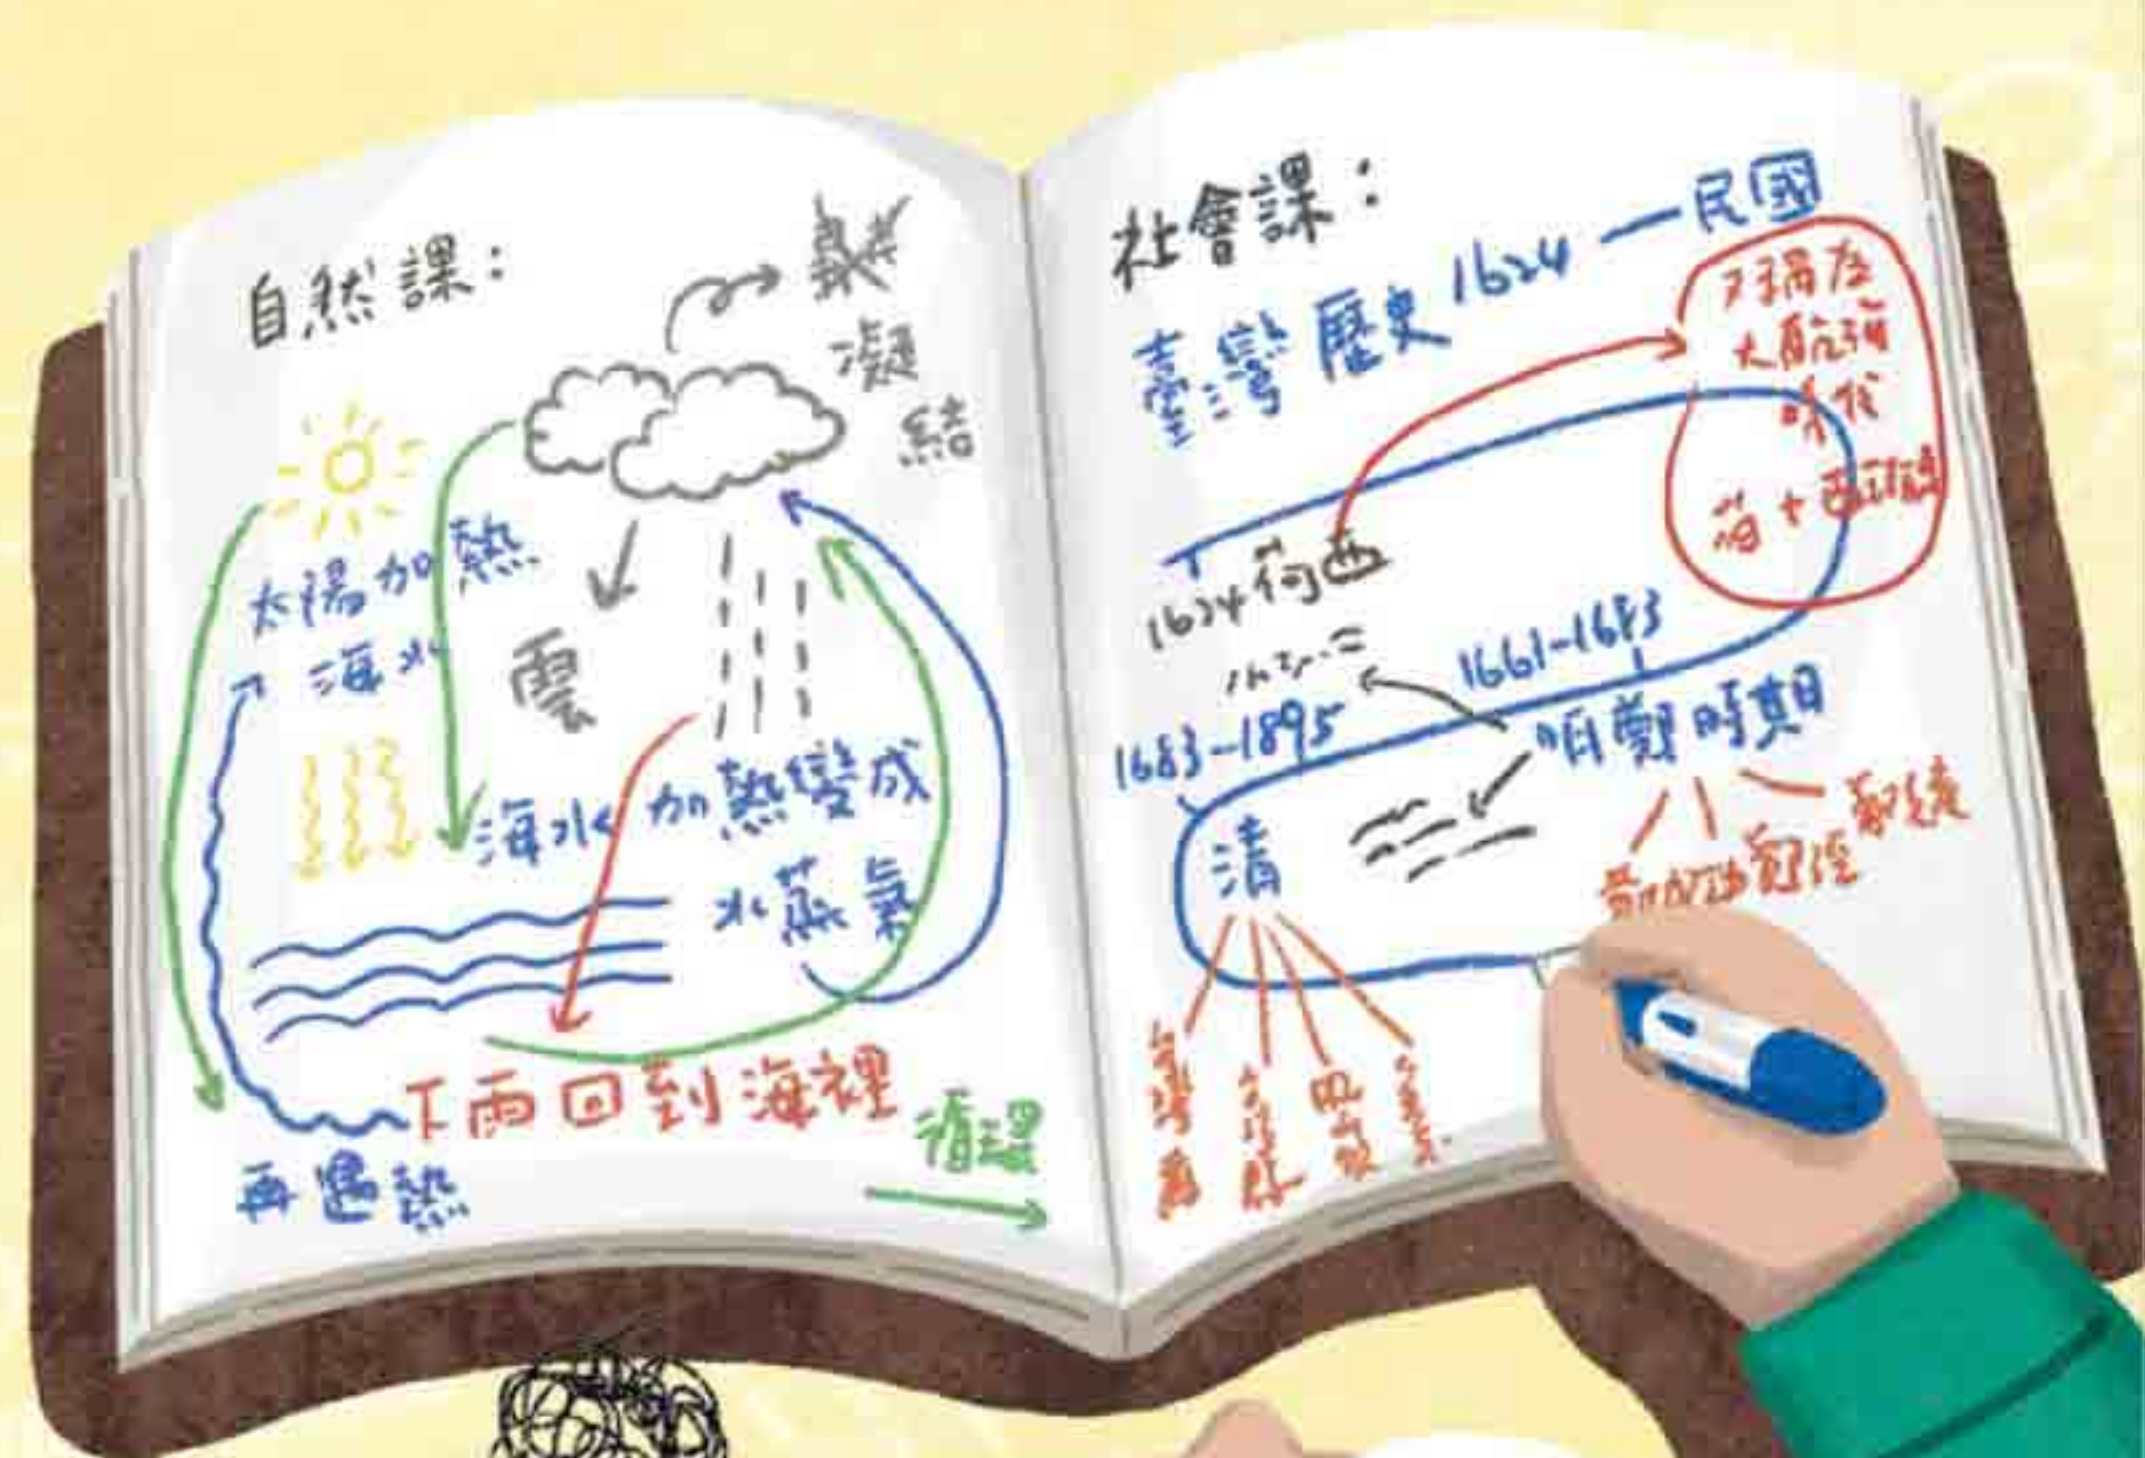 自然課：
凝
結
太陽加熱
海水
雲
海水加熱變成
水蒸氣
下雨回到海裡
循環
再遇熱
社會課：
臺灣歷史1624—民國
大航海
時代
荷+西
1624荷西
1661-1683
明鄭時期
鄭經
1683-1895
清